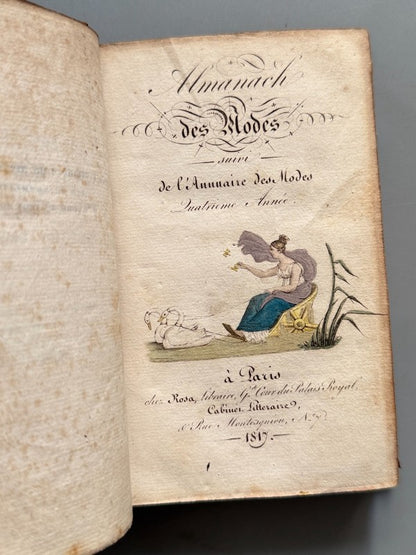 Almanach
des Modes
suivi
de l'Annuaire des Modes
Quatrième Année.
à Paris
chez Rosa, Libraire, Gde Cour du Palais Royal,
Cabinet Litteraire,
Rue Montesquiou, N.º 7
1817.